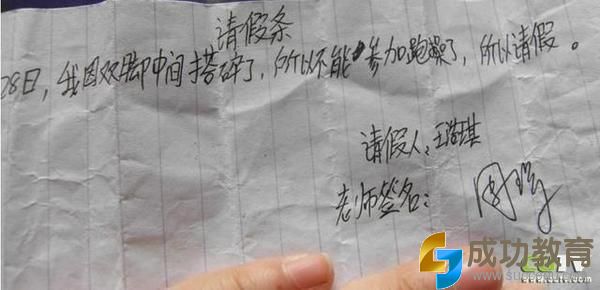 请假条
28日，我因双脚中间搭碎了，所以不能参加跑操了，所以请假。
请假人：王浩琪
老师签名：
成功教育